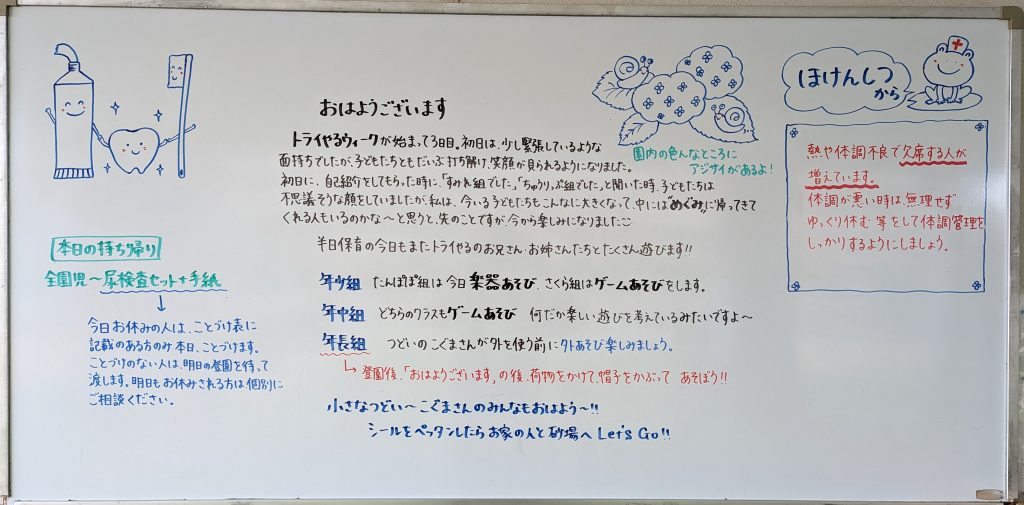 おはようございます
トライやるウィークが始まって3日目。初日は、少し緊張しているような
面持ちでしたが、子どもたちともだいぶ打ち解け、笑顔が見られるようになりました。
初日に、自己紹介をしてもらった時に、「すみれ組でした」、「ちゅうりっぷ組でした」と聞いた時、子どもたちは
不思議そうな顔をしていましたが、私は、今いる子どもたちもこんなに大きくなって、中には"めぐみ"に帰ってきて
くれる人もいるのかな〜と思うと、先のことですが、今から楽しみになりました
半日保育の今日もまたトライやるのお兄さん・お姉さんたちとたくさん遊びます!!
年少組 たんぽぽ組は今日楽器あそび、さくら組はゲームあそびをします。
年中組 どちらのクラスもゲームあそび 何だか楽しい遊びを考えているみたいですよ〜
年長組 つどいのこぐまさんが外を使う前に外あそび楽しみましょう。
→登園後、「おはようございます」の後、荷物をかけて、帽子をかぶって あそぼう!!
小さなつどい〜こぐまさんのみんなもおはよう〜!!
シールをペッタンしたらお家の人と砂場へ Let's Go!!
本日の持ち帰り
全園児〜尿検査セット+手紙
今日お休みの人は、ことづけ表に
記載のある方のみ本日、ことづけます。
ことづけのない人は、明日の登園を待って
渡します。明日もお休みされる方は個別に
ご相談ください。
園内の色んなところに
アジサイがあるよ!
ほけんしつ
から
熱や体調不良で欠席する人が
増えています。
体調が悪い時は、無理せず
ゆっくり休む 等をして体調管理を
しっかりするようにしましょう。